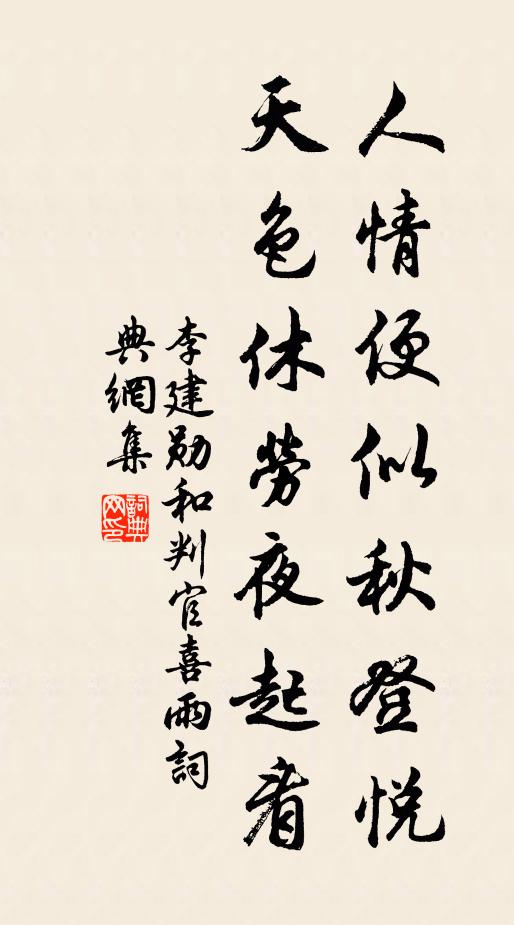 人情便似秋登悅
天色休勞夜起看
李建勛和判官喜雨詞
典網集
詞典网印